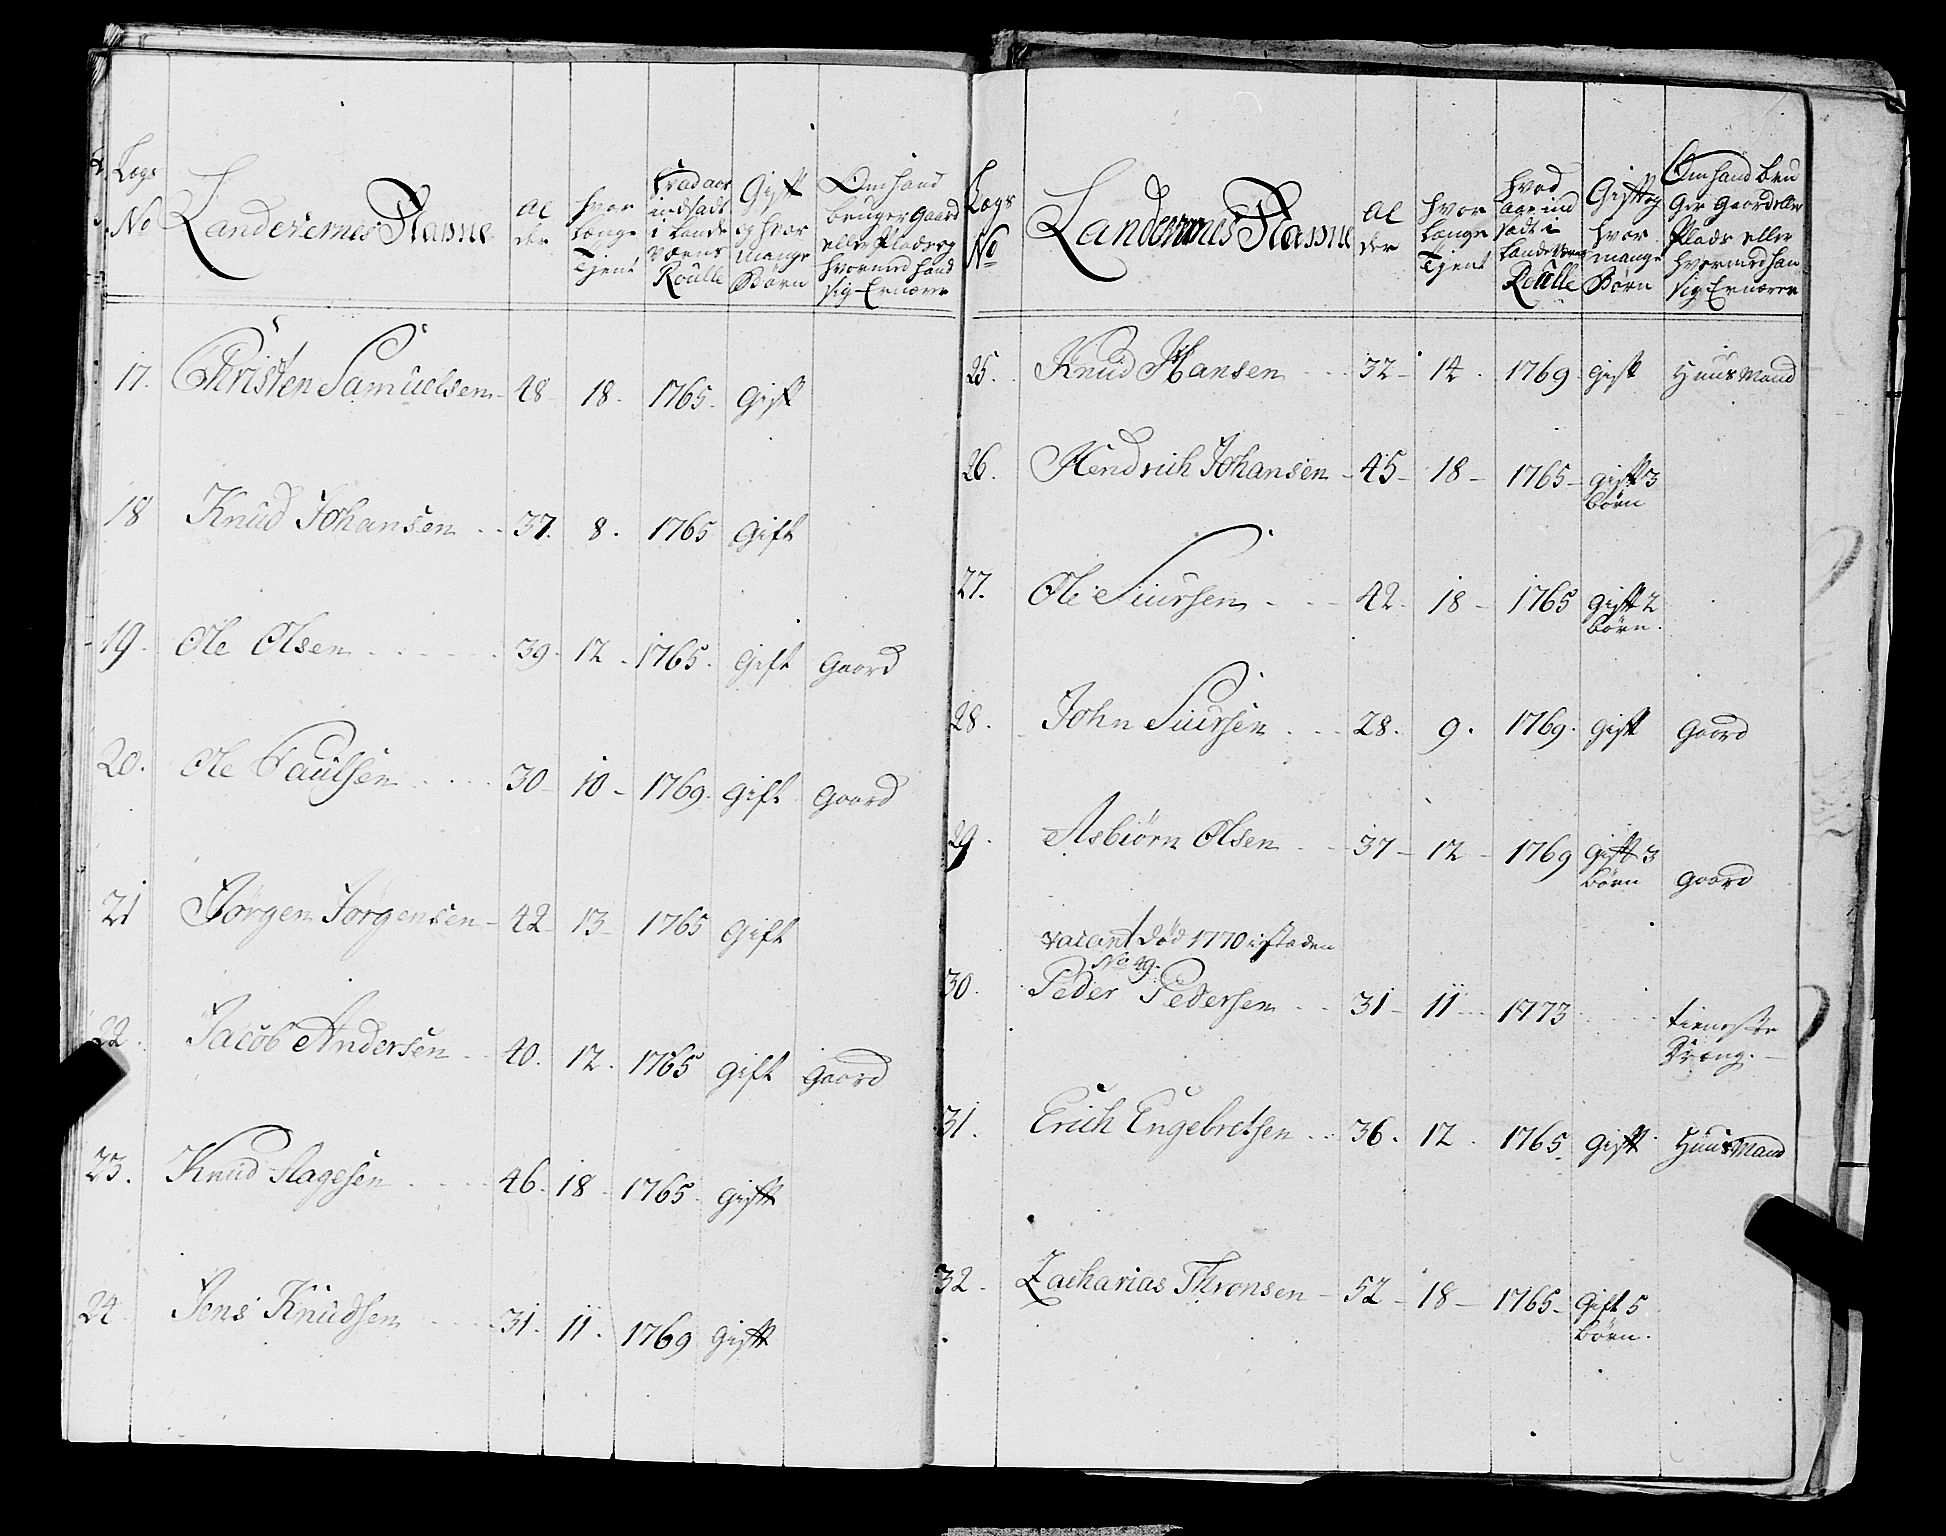 Lægs No
Landevernes Nafne
Al der
hvor længe Tjent
hvad aar indsadt i Lande Værns Roulle
Gift og hvor mange Børn
Om hand bruger Gaard eller Plads og hvormed hand sig Ernærer
17. Christen Samuelsen 48 18. 1765. Gift
18 Knud Johansen 37. 8. 1765 Gift
19. Ole Olsen 39. 12. 1765. Gift Gaard
20. Ole Paulsen 30 10 1769. Gift Gaard
21 Jørgen Jørgensen 42 13 1765 Gift
22. Jacob Andersen 40. 12. 1765 Gift Gaard
23. Knud Aagesen 46. 18 1765 Gift
24. Jens Knudsen 31. 11. 1769 Gift
Lægs No
Landevernes Nafne
Al der
hvor længe Tjent
hvad Aar ind sadt i Landeværns Roulle
Gift og hvor mange Børn
Om hand bru ger Gaard eller Plads eller hvormed han sig Ernærer
25. Knud Hansen 32 14. 1769 Gift Huus Mand
26. Hendrich Johansen 45 18 1765 Gift 3
Børn
27. Ole Siursen 42. 18 1765 Gift 2
Børn.
28. John Siursen 28. 9. 1769. Gift Gaard
29. Asbiørn Olsen 37 12 1769 Gift 3
Børn Gaard
vacant død 1770 i steden
No 49.
30. Peder Pedersen 31 11 1773 tieneste
Dræng.
31. Erich Engebretsen 36. 12. 1765. Gift Huus Mand
32. Zacharias Thronsen 52 18 1765 Gift 5
Børn.